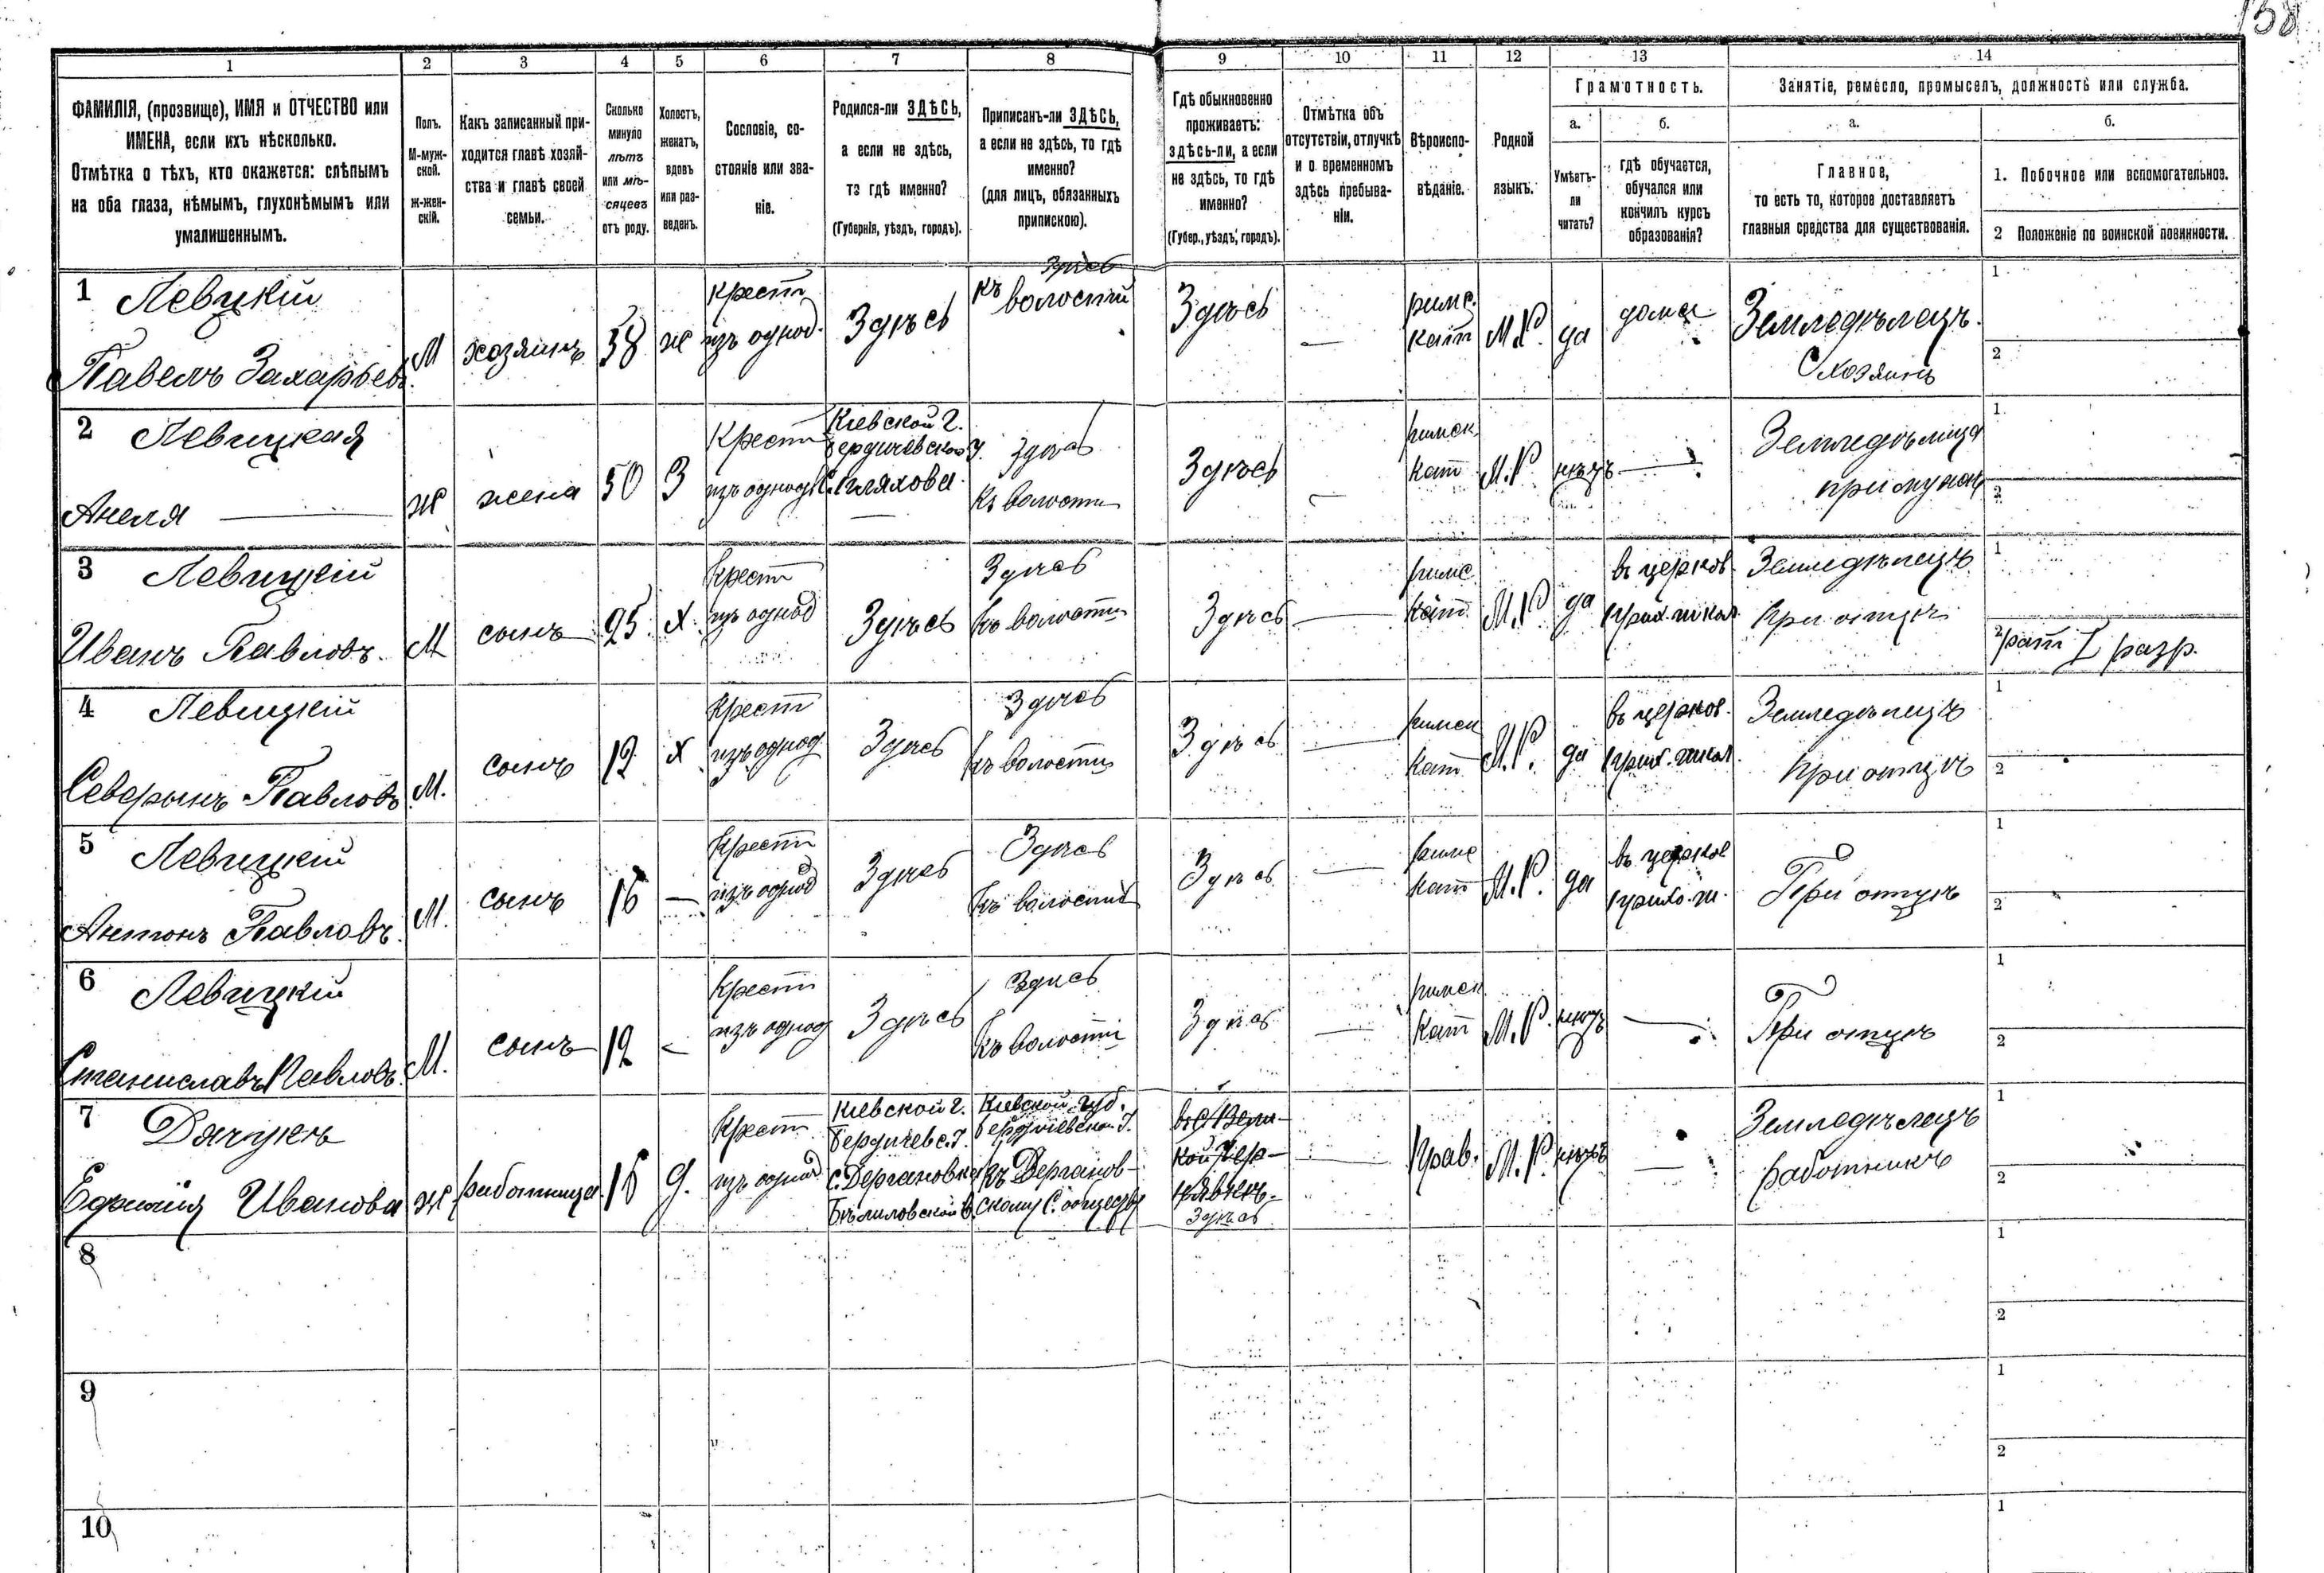 158
1 2 3 4 5 6 7 8 9 10 11 12 13 14
ФАМИЛІЯ, (прозвище), ИМЯ и ОТЧЕСТВО или
ИМЕНА, если ихъ нѣсколько.
Отмѣтка о тѣхъ, кто окажется: слѣпымъ
на оба глаза, нѣмымъ, глухонѣмымъ или
умалишеннымъ.
Полъ.
М-муж-
ской.
ж-жен-
скій.
Какъ записанный при-
ходится главѣ хозяй-
ства и главѣ своей
семьи.
Сколько
минуло
лѣтъ
или мѣ-
сяцевъ
отъ роду.
Холостъ,
женатъ,
вдовъ
или раз-
веденъ.
Сословіе, со-
стояніе или зва-
ніе.
Родился-ли ЗДѢСЬ,
а если не здѣсь,
то гдѣ именно?
(Губернія, уѣздъ, городъ).
Приписанъ-ли ЗДѢСЬ,
а если не здѣсь, то гдѣ
именно?
(для лицъ, обязанныхъ
припискою).
Гдѣ обыкновенно
проживаетъ:
здѣсь-ли, а если
не здѣсь, то гдѣ
именно?
(Губер., уѣздъ, городъ).
Отмѣтка объ
отсутствіи, отлучкѣ
и о временномъ
здѣсь пребыва-
ніи.
Вѣроиспо-
вѣданіе.
Родной
языкъ.
Грамотность.
а.
Умѣетъ-
ли
читать?
б.
гдѣ обучается,
обучался или
кончилъ курсъ
образованія?
Занятіе, ремесло, промыселъ, должность или служба.
а.
Главное,
то есть то, которое доставляетъ
главныя средства для существованія.
б.
1. Побочное или вспомогательное.
2 Положеніе по воинской повинности.
1 Левицкій
Павелъ Захарьевъ
М
хозяинъ
58
ж
крест
изъ однод.
Здѣсь
Здѣсь
къ волости
Здѣсь
—
римс.
кат
М.Р.
да
дома
Земледѣлецъ.
Хозяинъ
1
2
2 Левицкая
Анеля —
ж
жена
50
З
Крест
изъ однод
Кіевской г.
Бердичевской У.
Здѣсь
Къ волости
Здѣсь
—
римск.
кат
М.Р.
нѣтъ
—
Земледѣлица
при мужѣ
1
2
3 Левицкій
Иванъ Павловъ.
М
сынъ
25.
х.
Крест
изъ однод
Здѣсь
Здѣсь
Къ волости
Здѣсь
—
римс.
кат.
М.Р.
да
въ церков.
прих. школ
Земледѣлецъ
При отцѣ
1
2 рат I разр.
4 Левицкій
Северынъ Павловъ
М.
сынъ
19
х
Крест
изъ однод.
Здѣсь
Здѣсь
Къ волости
Здѣсь
—
римск
Кат
М.Р.
да
въ церков.
прих. школ.
Земледѣлецъ
При отцѣ
1
2
5 Левицкій
Антонъ Павловъ.
М.
сынъ
16
—
Крест
изъ однод
Здѣсь
Здѣсь
Къ волости
Здѣсь
—
римс
кат
М.Р.
да
въ церков
прихо. ш.
При отцѣ
1
2
6 Левицкій
Станиславъ Павловъ.
М.
сынъ
12
-
Крест
изъ однод
Здѣсь
Здѣсь
Къ волости
Здѣсь
—
римск
Кат
М.Р.
нѣтъ
—
При отцѣ
1
2
7 Дячукъ
Ивановна
ж
работница
16
д.
Крест
изъ однод
Кіевской г.
Бердичевс. У.
с. Дергановка
Бѣлиловской В.
Кіевской губ.
Бердичевской У.
къ Дерганов-
скому С. обществу
Здѣсь
—
Прав.
М.Р.
нѣтъ
—
Земледѣлецъ
работникъ
1
2
8
1
2
9
1
2
10
1